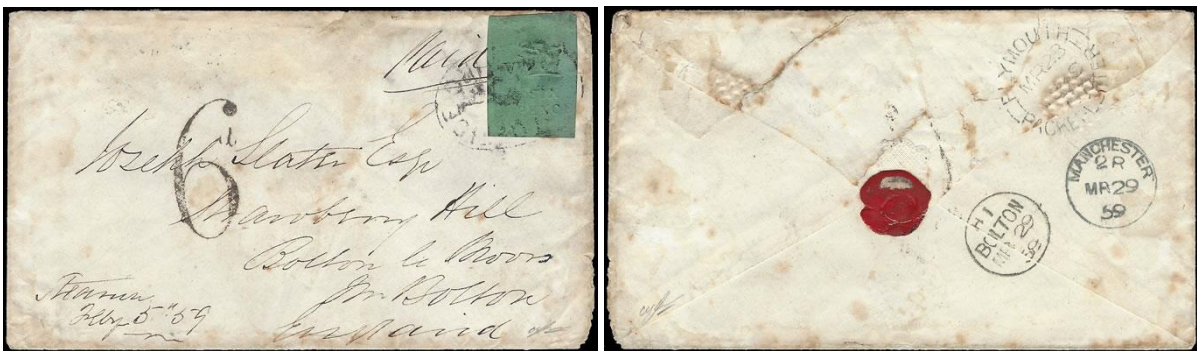 Paid
6d
Joseph Slater Esq
Hill
Bolton le Moors
Bolton
England
Feby 5th 59
PLYMOUTH
MR 28
PACKET LETTER
MANCHESTER
2R
MR 29
59
H1
BOLTON
MR 29
59